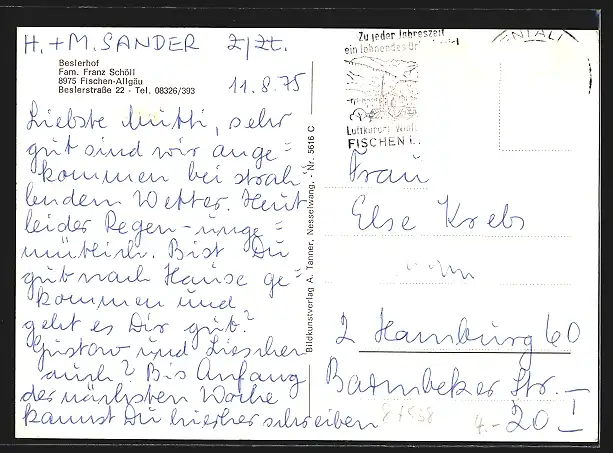 H. + M. SANDER z/Zt.
Beslerhof
Fam. Franz Schöll
8975 Fischen-Allgäu
Beslerstraße 22 - Tel. 08326/393
11.8.75
Liebste Mutti, sehr
gut sind wir ange=
kommen bei strah=
lendem Wetter. Heut
leider Regen - unge=
mütlich. Bist Du
gut nach Hause ge=
kommen und
geht es Dir gut?
Gustav und Lieschen
auch? Bis Anfang
der nächsten Woche
kannst Du hierher schreiben
Bildkunstverlag A. Tanner, Nesselwang. - Nr. 5616 C
Zu jeder Jahreszeit
ein lohnendes
Luftkurort
FISCHEN i.
Frau
Else Krebs
2 Hamburg 60
Barmbeker Str. -
20 I
4.-